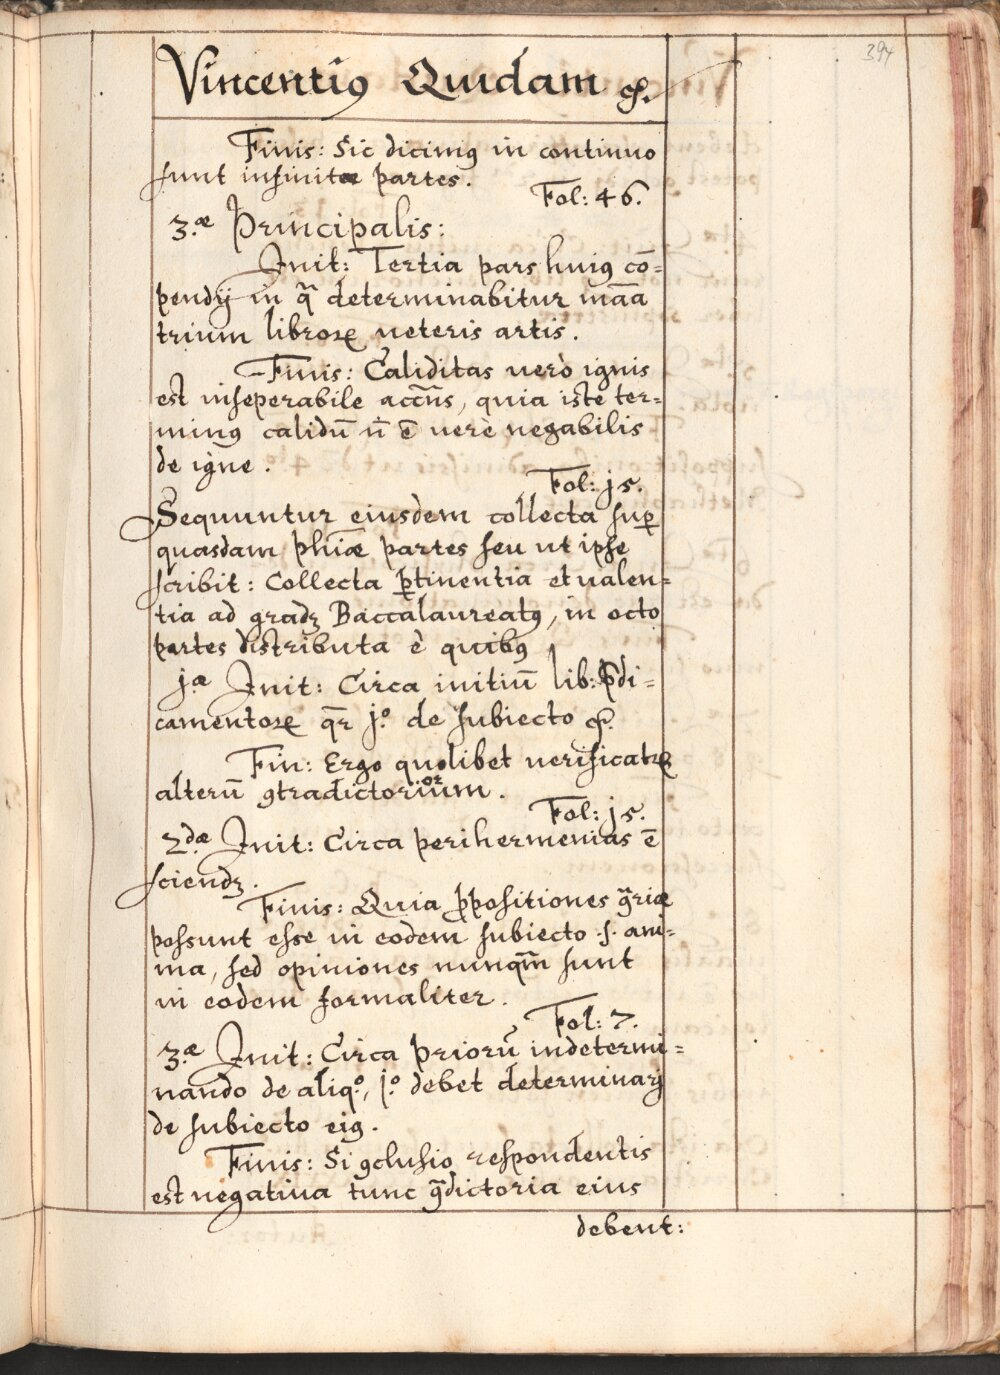 394
Vincentiꝰ Quidam &.
Finis: Sic dicimꝰ in continuo
sunt infinitæ partes.
Fol: 46.
3.æ Principalis:
Init: Tertia pars huiꝰ cō=
pendij in qā determinabitur māa
trium libroꝝ ueteris artis.
Finis: Caliditas uerò ignis
est inseperabile accn̄s, quia iste ter=
minꝰ calidū n̄ ē uerè negabilis
de igne.
Fol: j5.
Sequuntur eiusdem collecta suꝑ
quasdam phīæ partes seu ut ipse
scribit: Collecta ꝑtinentia et ualen=
tia ad gradꝫ Baccalaureatꝰ, in octo
partes distributa è quibꝰ
j.æ Init: Circa initiū lib: p̄di=
camentoꝝ qr̄ j.º de subiecto &.
Fin: Ergo quolibet uerificatꝝ
alterū ꝯtradictoriorum.
Fol: j5.
2.dæ Init: Circa perihermenias ē
sciendꝫ.
Finis: Quia ꝓpositiones qr̄iæ
possunt esse in eodem subiecto .s. ani=
ma, sed opiniones nunqm̄ sunt
in eodem formaliter.
Fol: 7.
3.æ Init: Circa priorū indetermi=
nando de aliq.º, j.º debet determinarj
de subiecto eiꝰ.
Finis: Si ꝯclusio respondentis
est negatiua tunc qd̄ictoria eius
debent: